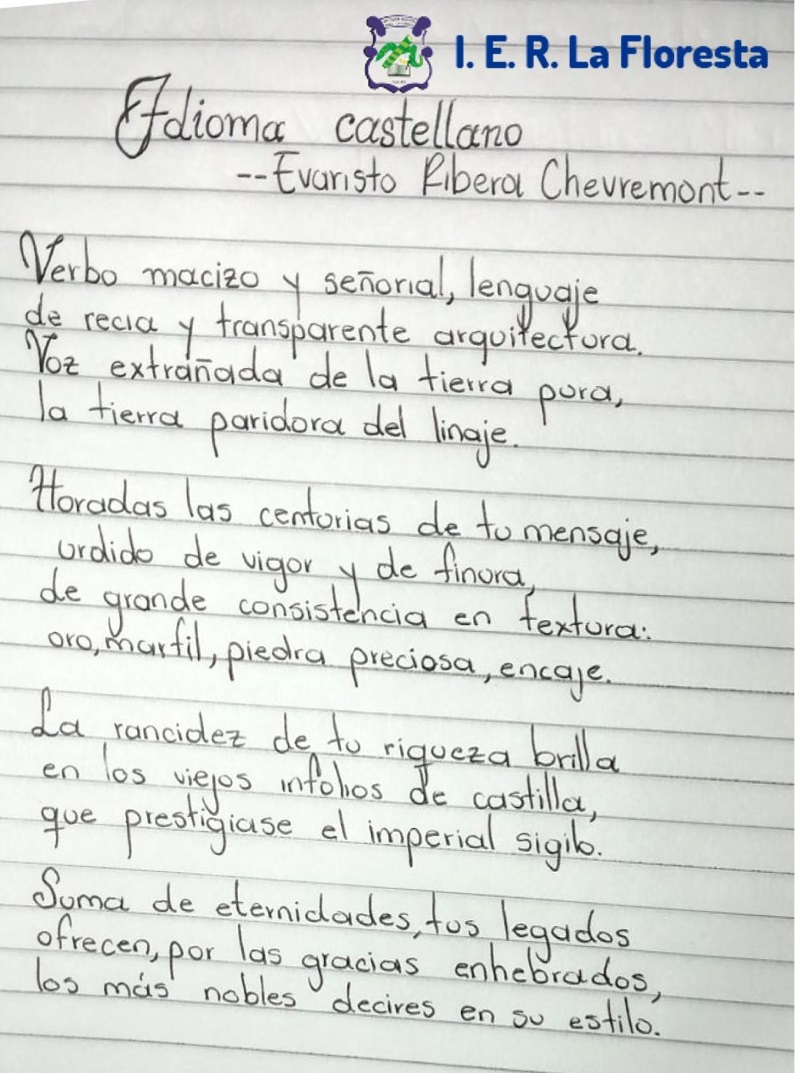 I. E. R. La Floresta
Idioma castellano
--Evaristo Ribera Chevremont--
Verbo macizo y señorial, lenguaje
de recia y transparente arquitectura.
Voz extrañada de la tierra pura,
la tierra paridora del linaje.
Horadas las centurias de tu mensaje,
urdido de vigor y de finura,
de grande consistencia en textura:
oro, marfil, piedra preciosa, encaje.
La rancidez de tu riqueza brilla
en los viejos infolios de castilla,
que prestigiase el imperial sigilo.
Suma de eternidades, tus legados
ofrecen, por las gracias enhebrados,
los más nobles decires en su estilo.